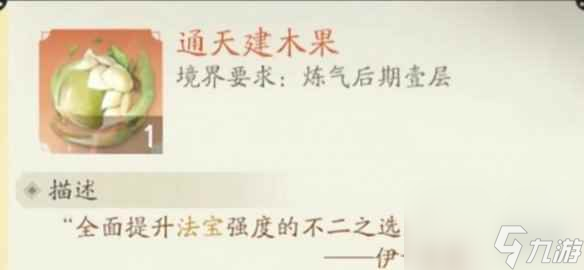 通天建木果
境界要求：炼气后期壹层
1
描述
“全面提升法宝强度的不二之选
——伊
九游